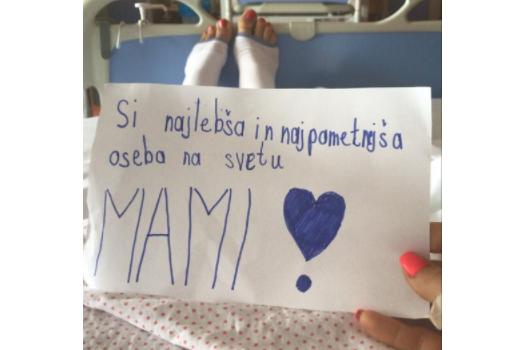 Si najlebša in najpametnejša
oseba na svetu
MAMI